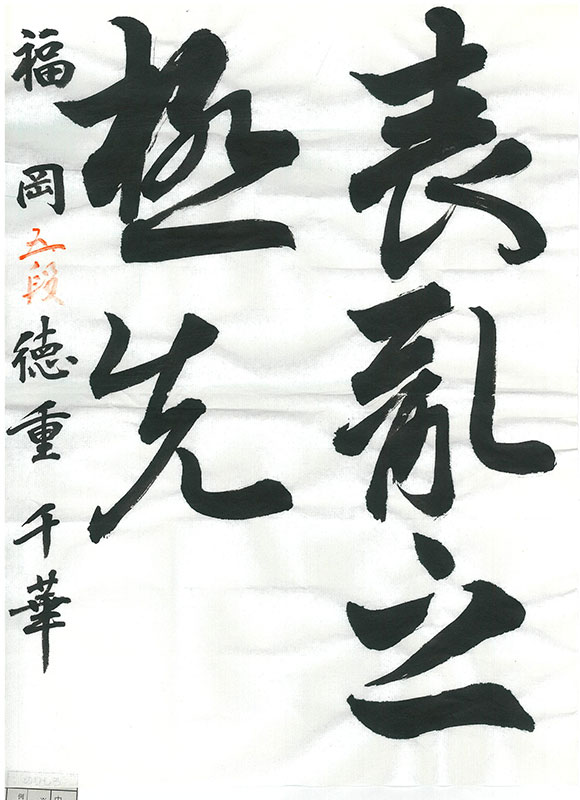 喪亂之
極先
福岡 五段 徳重千華